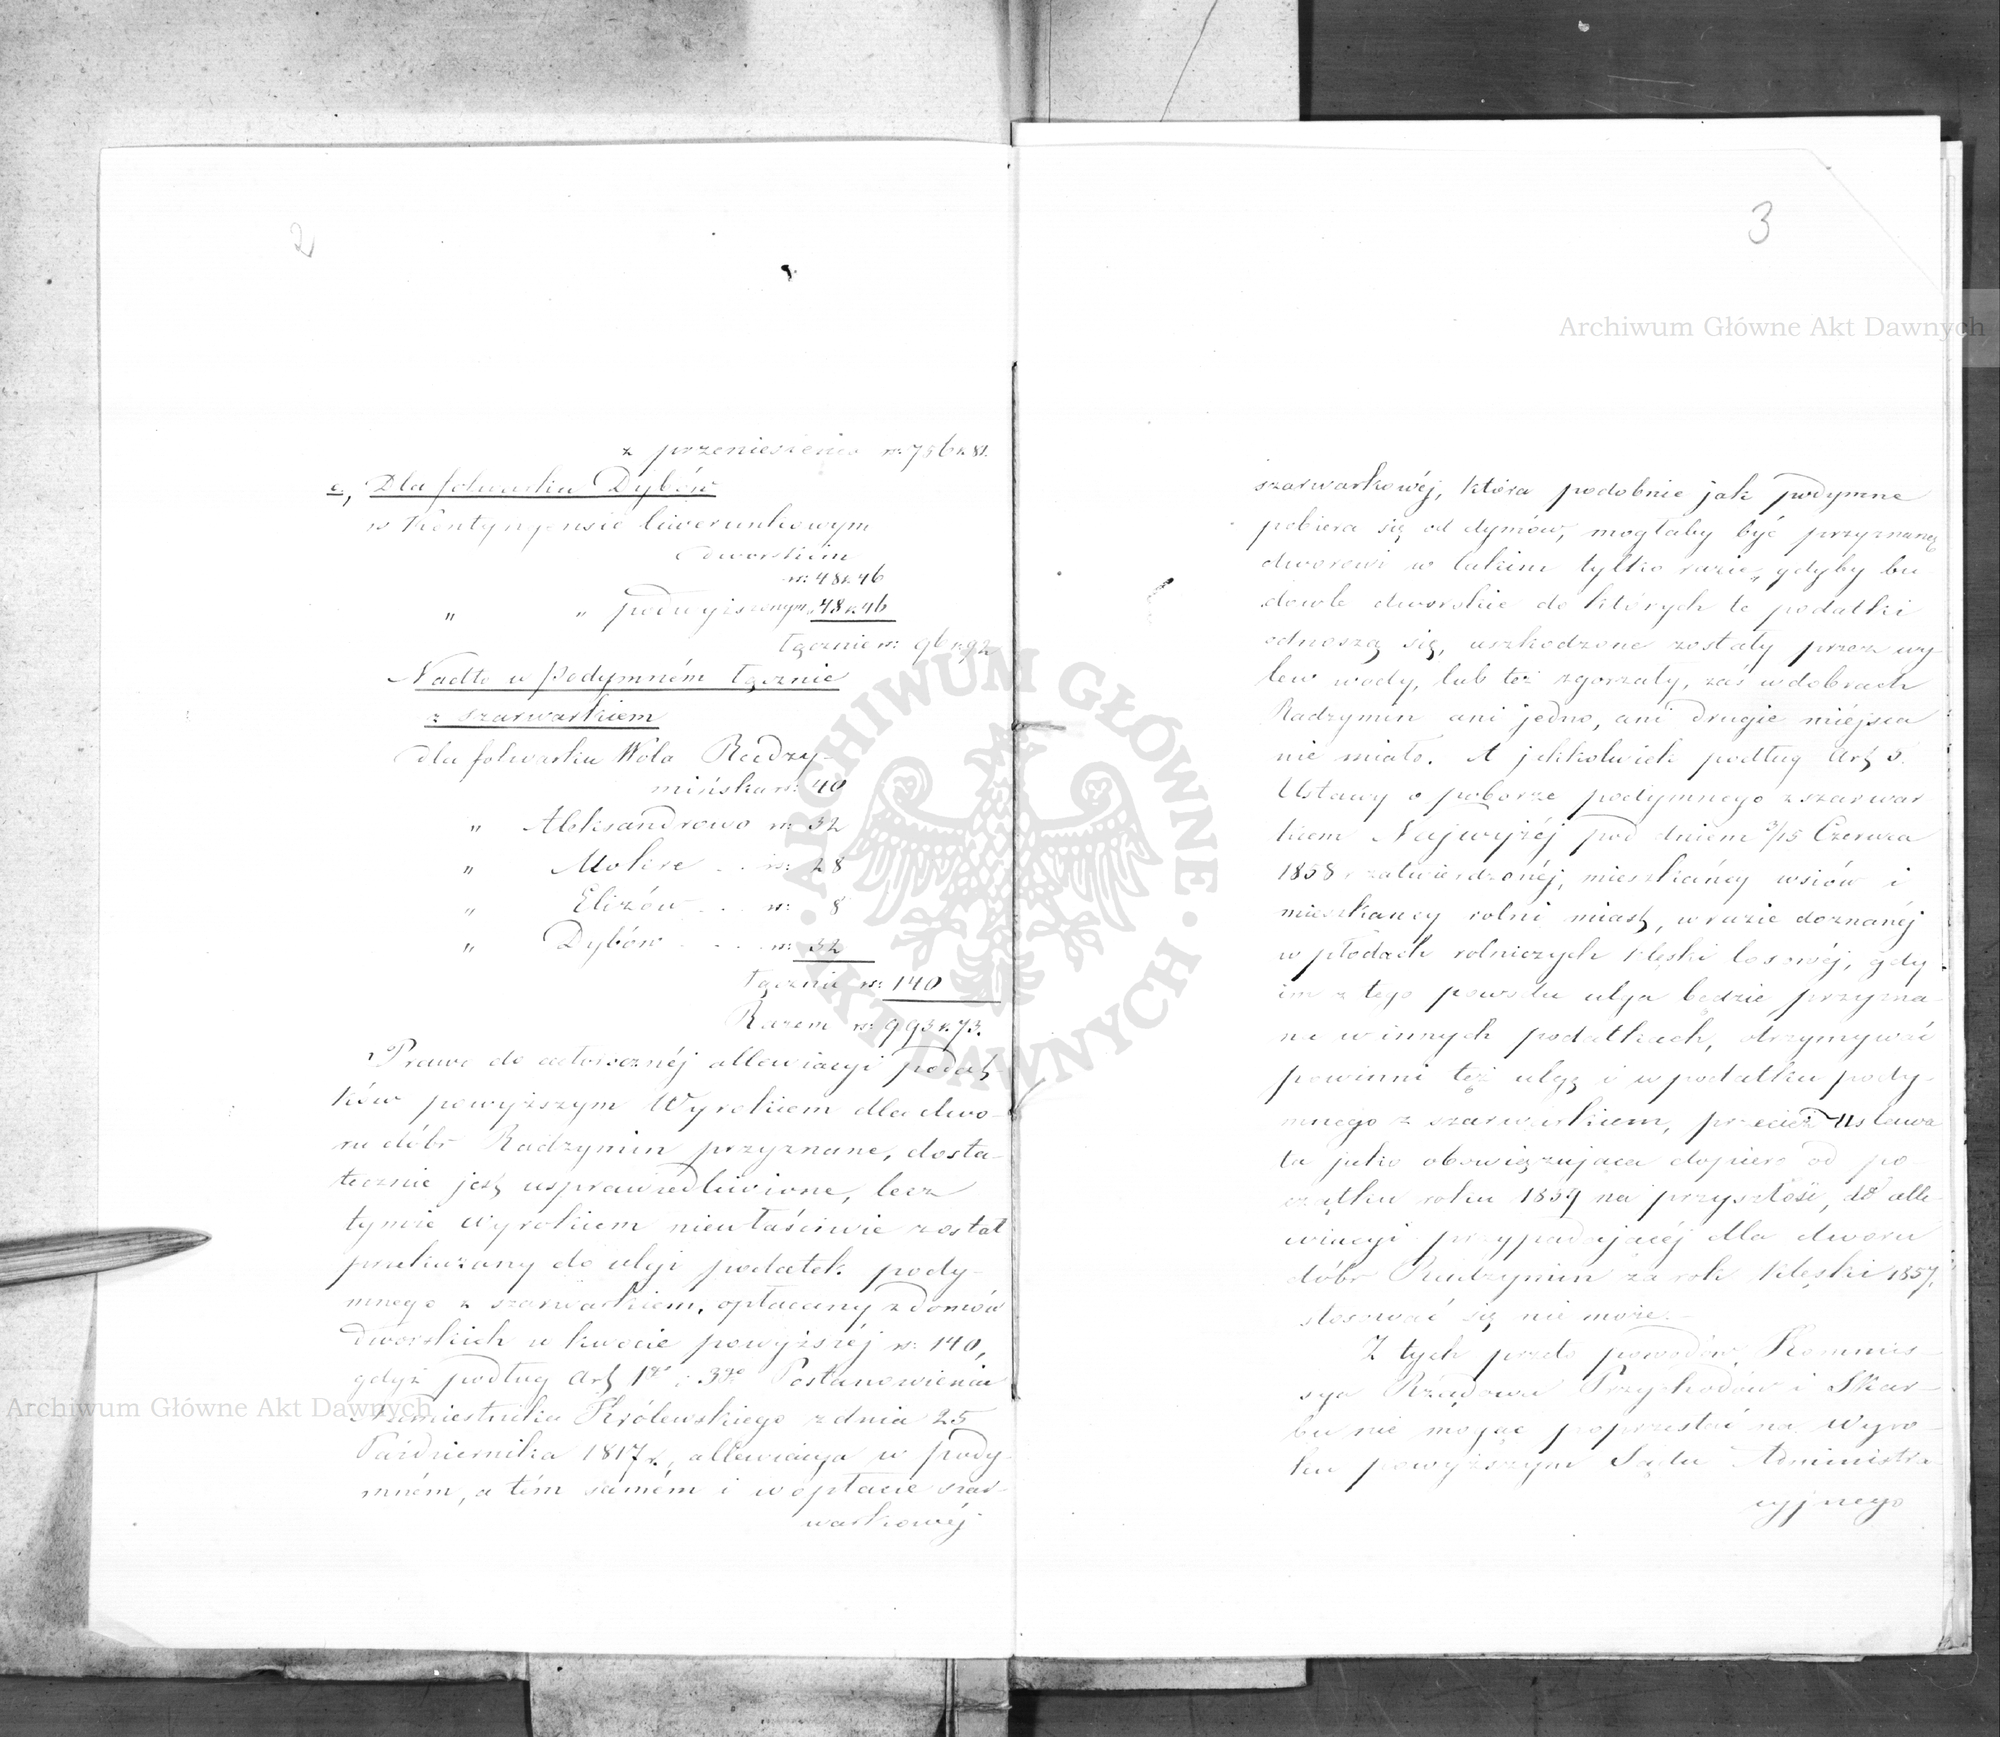 2
z przeniesienia rs: 756 k. 81.
e, Dla folwarku Dybów
w Kontyngensie liwerunkowym
dworskim
rs: 48 k. 46
" " podwyższonym 48 k. 46
łącznie rs: 96 k. 92
Nadto w Podymném łącznie
z szarwarkiem
dla folwarku Wola Radzy-
mińska rs: 40
" Aleksandrowo rs: 32
" Mokre . . . rs: 28
" Elizów . . . rs: 8
" Dybów . . . . rs: 32
łącznie rs: 140
Razem rs: 993 k. 73.
Prawo do allewiacyi podat-
ków powyższym Wyrokiem dla dwo-
ru dóbr Radzymin przyznane, dosta-
tecznie jest usprawiedliwione, lecz
tymże wyrokiem niewłaściwie został
wskazany do ulgi podatek pody-
mnego z szarwarkiem, opłacany z domów
dworskich w kwocie powyższéj rs: 140,
gdyż podług Art 1go i 3go Postanowienia
Namiestnika Królewskiego z dnia 25
Października 1817 r., allewiacya w pody-
mném, a tém samém i w opłacie szar-
warkowéj
3
szarwarkowéj, która podobnie jak podymne
pobiera się od dymów, mogłaby być przyznaną
dworowi w takim tylko razie, gdyby bu
dowle dworskie do których te podatki
odnoszą się, uszkodzone zostały przez wy-
lew wody, lub też zgorzały, zaś w dobrach
Radzymin ani jedno, ani drugie miéjsca
nie miało. A jakkolwiek podług Art 5.
Ustawy o poborze podymnego z szarwar
kiem Najwyżéj pod dniem 3/15 Czerwca
1858 r zatwierdzonéj, mieszkańcy wsiów i
mieszkańcy rolni miast, w razie doznanéj
w płodach rolniczych klęski losowéj, gdy
im z tego powodu ulga będzie przyzna-
na w innych podatkach, otrzymywać
powinni też ulgę i w podatku pody-
mnego z szarwarkiem, przecież Ustawa
ta jako obowiązująca dopiero od po-
czątku roku 1859 na przyszłość, do alle-
wiacyi przypadającéj dla dworu
dóbr Radzymin za rok klęski 1857,
stosować się nie może.
Z tych przeto powodów, Kommis-
sya Rządowa Przychodów i Skar-
bu nie mogąc poprzestać na Wyro-
ku powyższym Sądu Administra
cyjnego
Archiwum Główne Akt Dawnych
Archiwum Główne Akt Dawnych
ARCHIWUM GŁÓWNE
AKT DAWNYCH